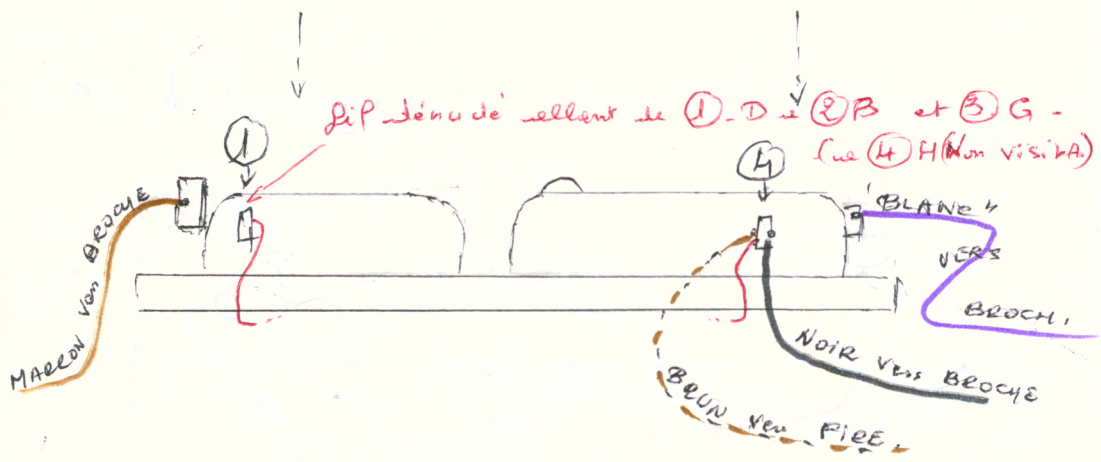 fil dénudé allant de ①-D à ②B et ③G-
④H (Non visité)
①
④
MARRON vers BROCHE
"BLANC"
VERS
BROCH.
NOIR Vers BROCHE
BRUN vers FIRE.